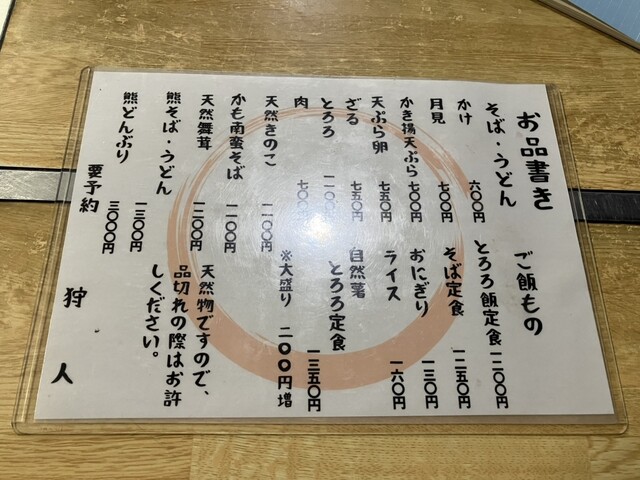 お品書き
そば・うどん
かけ 六〇〇円
月見 七〇〇円
かき揚天ぷら 七〇〇円
天ぷら卵 七五〇円
ざる 七五〇円
とろろ
肉 七〇
天然きのこ 一二〇〇円
かも南蛮そば 一二〇〇円
天然舞茸 一二〇〇円
熊そば・うどん 一三〇〇円
熊どんぶり 三〇〇〇円
要予約
ご飯もの
とろろ飯定食 一二〇〇円
そば定食 一二五〇円
おにぎり 一三〇円
ライス 一六〇円
自然薯
とろろ定食 一三五〇円
※大盛り 二〇〇円増
天然物ですので、
品切れの際はお許
しください。
狩人